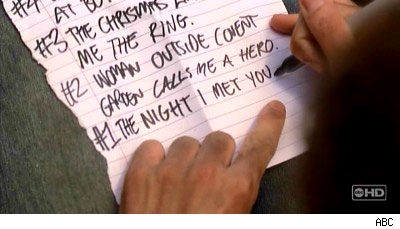 #4
AT BO
#3 THE CHRISTMAS A
ME THE RING.
#2 WOMAN OUTSIDE COVENT
GARDEN CALLS ME A HERO.
#1 THE NIGHT I MET YOU
abc HD
ABC